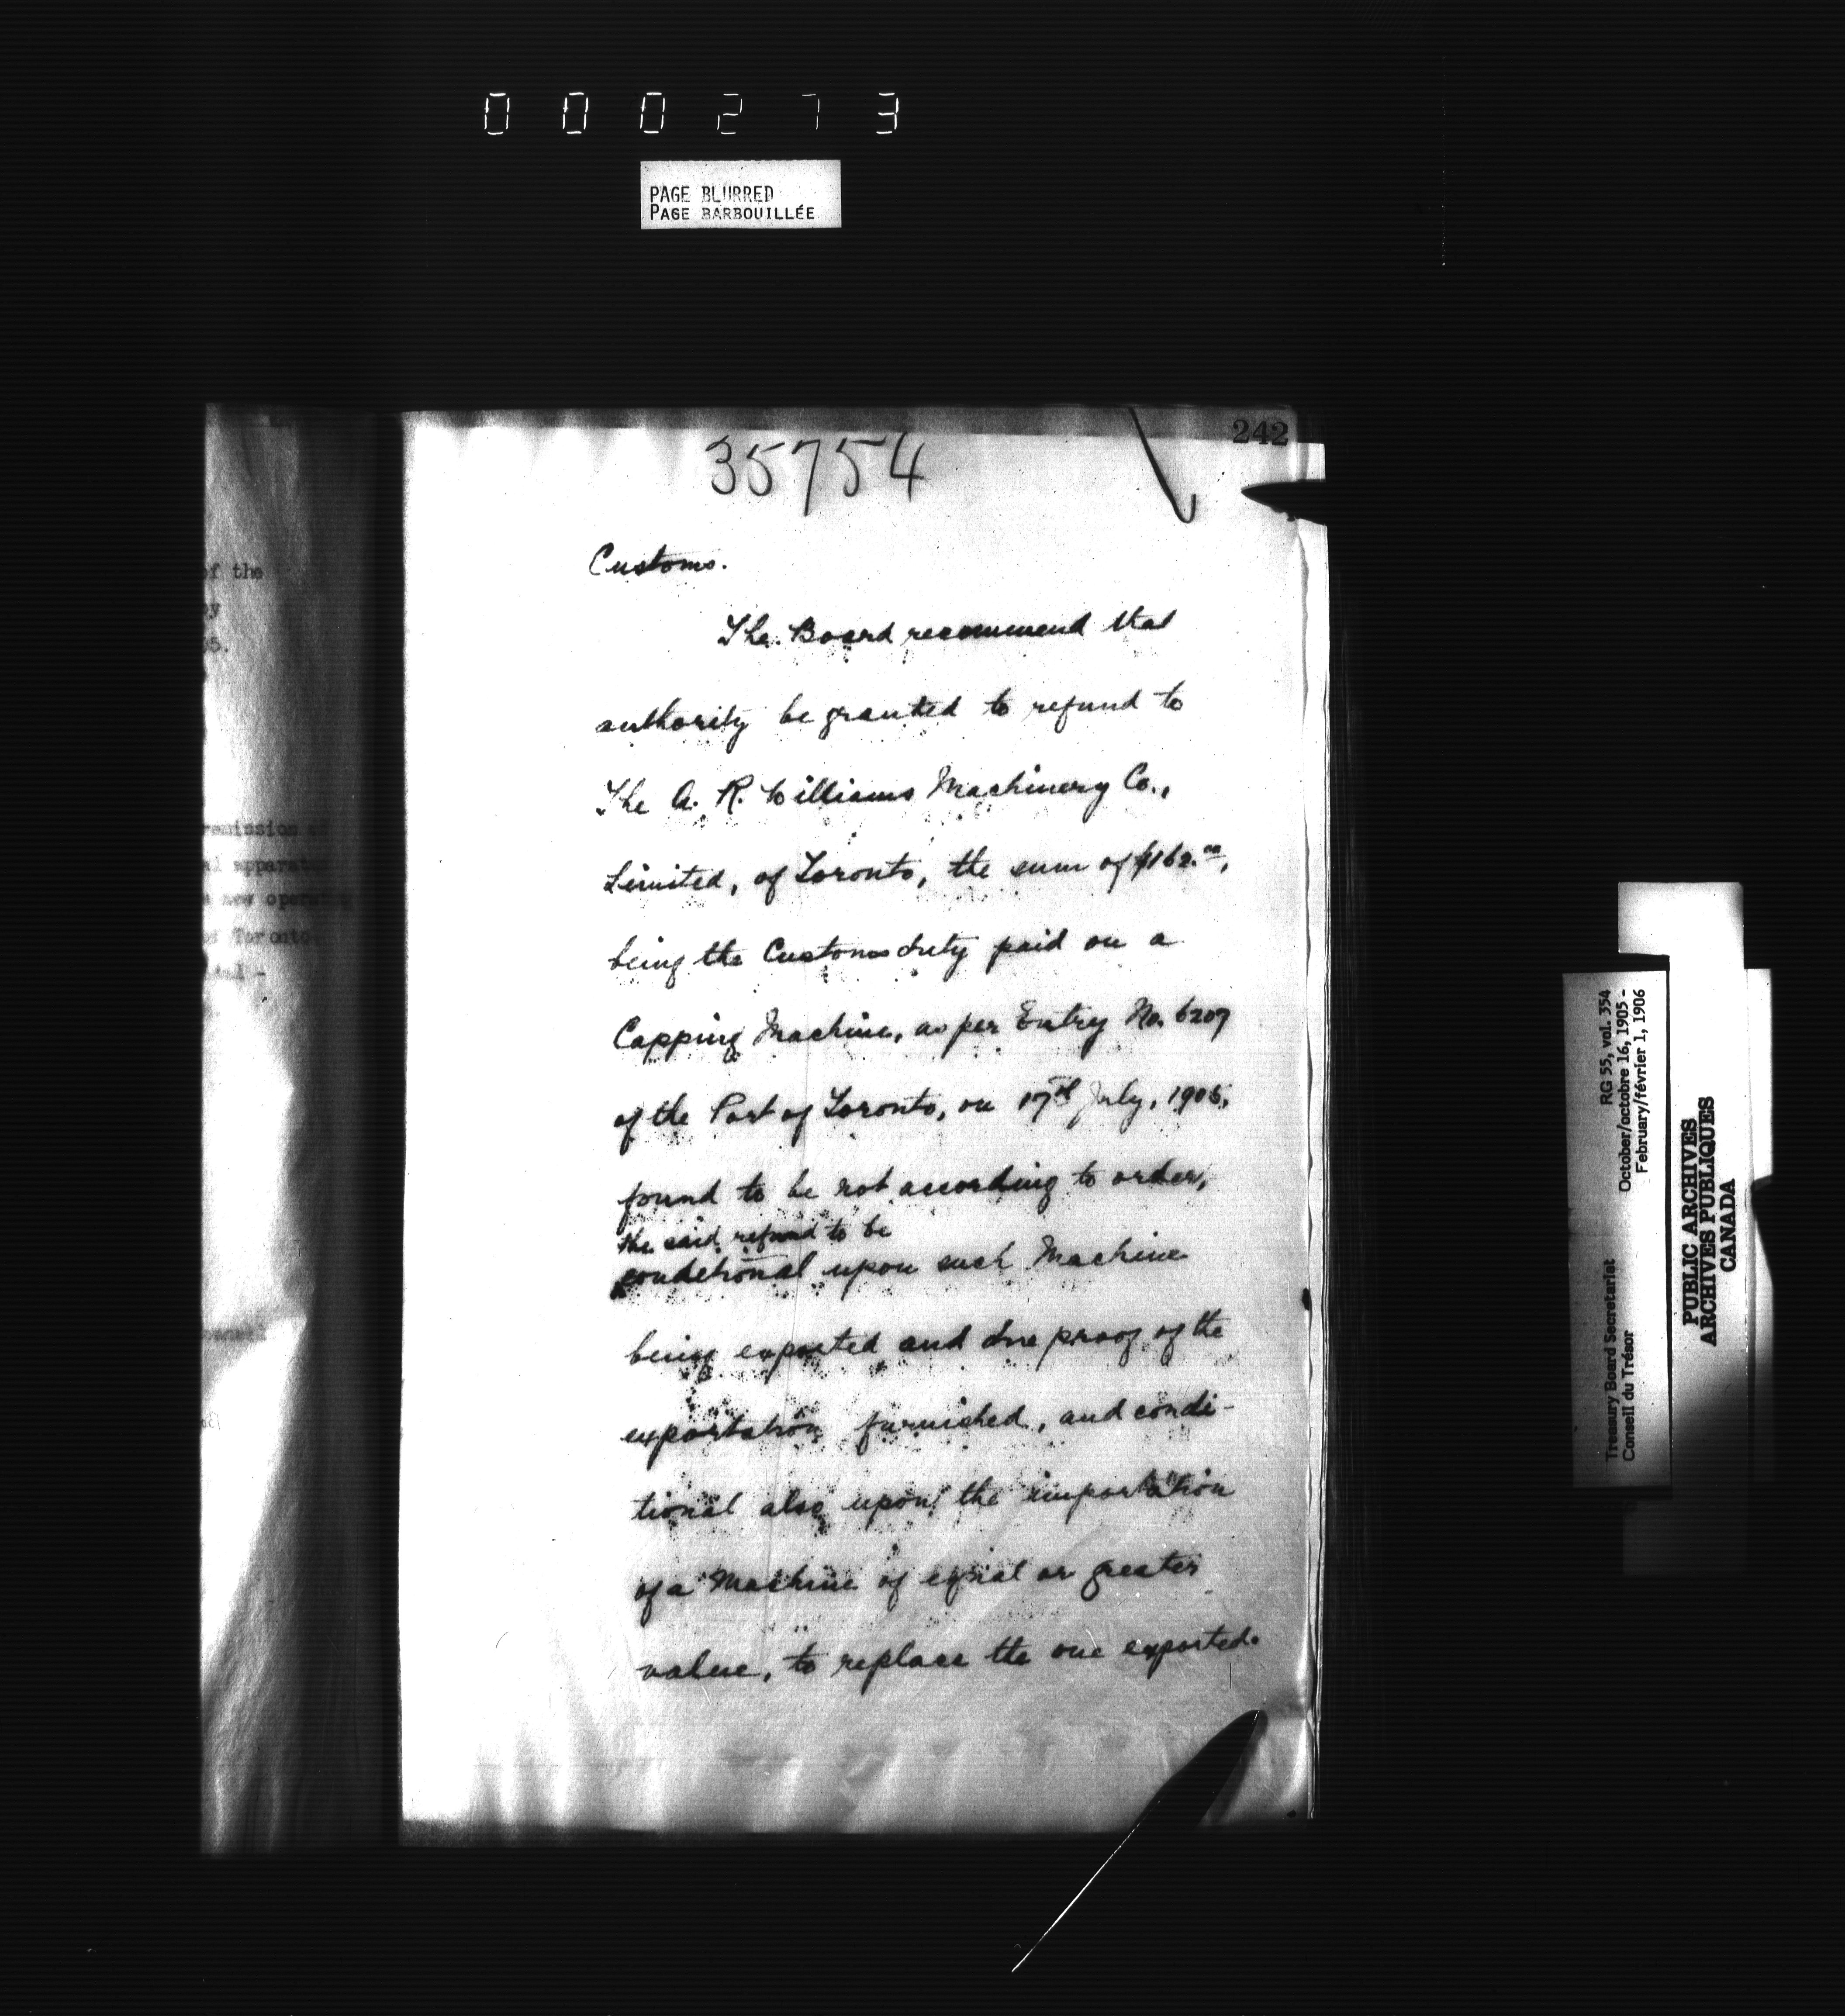 000273
PAGE BLURRED
PAGE BARBOUILLÉE
242
35754
Customs.
The Board recommend that
authority be granted to refund to
The A. R. Williams Machinery Co.,
Limited, of Toronto, the sum of $162.00,
being the Customs duty paid on a
Capping Machine, as per Entry No. 6207
of the Port of Toronto, on 17th July, 1905,
found to be not according to order,
the said refund to be
conditional upon such Machine
being exported and due proof of the
exportation furnished, and condi-
tional also upon the importation
of a Machine of equal or greater
value, to replace the one exported.
of the
remission
apparatus
new
Toronto
RG 55, vol. 354
October/octobre 16, 1905 -
February/février 1, 1906
Treasury Board Secretariat
Conseil du Trésor
PUBLIC ARCHIVES
ARCHIVES PUBLIQUES
CANADA